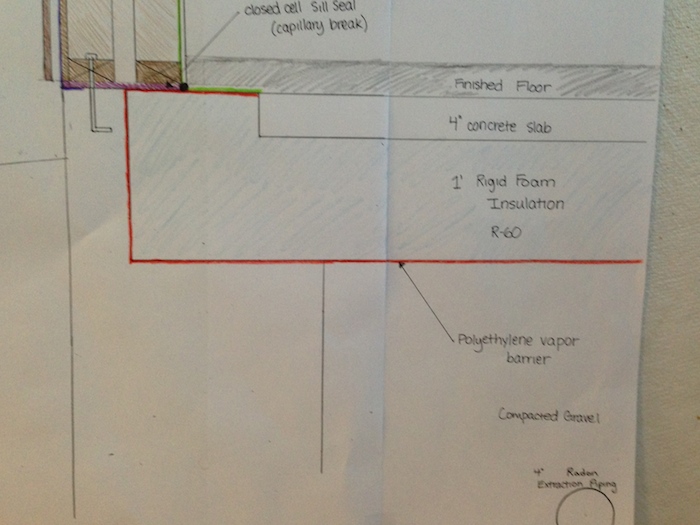 closed cell Sill Seal
(capillary break)
Finished Floor
4" concrete slab
1' Rigid Foam
Insulation
R-60
Polyethylene vapor
barrier
Compacted Gravel
4" Radon
Extraction Piping